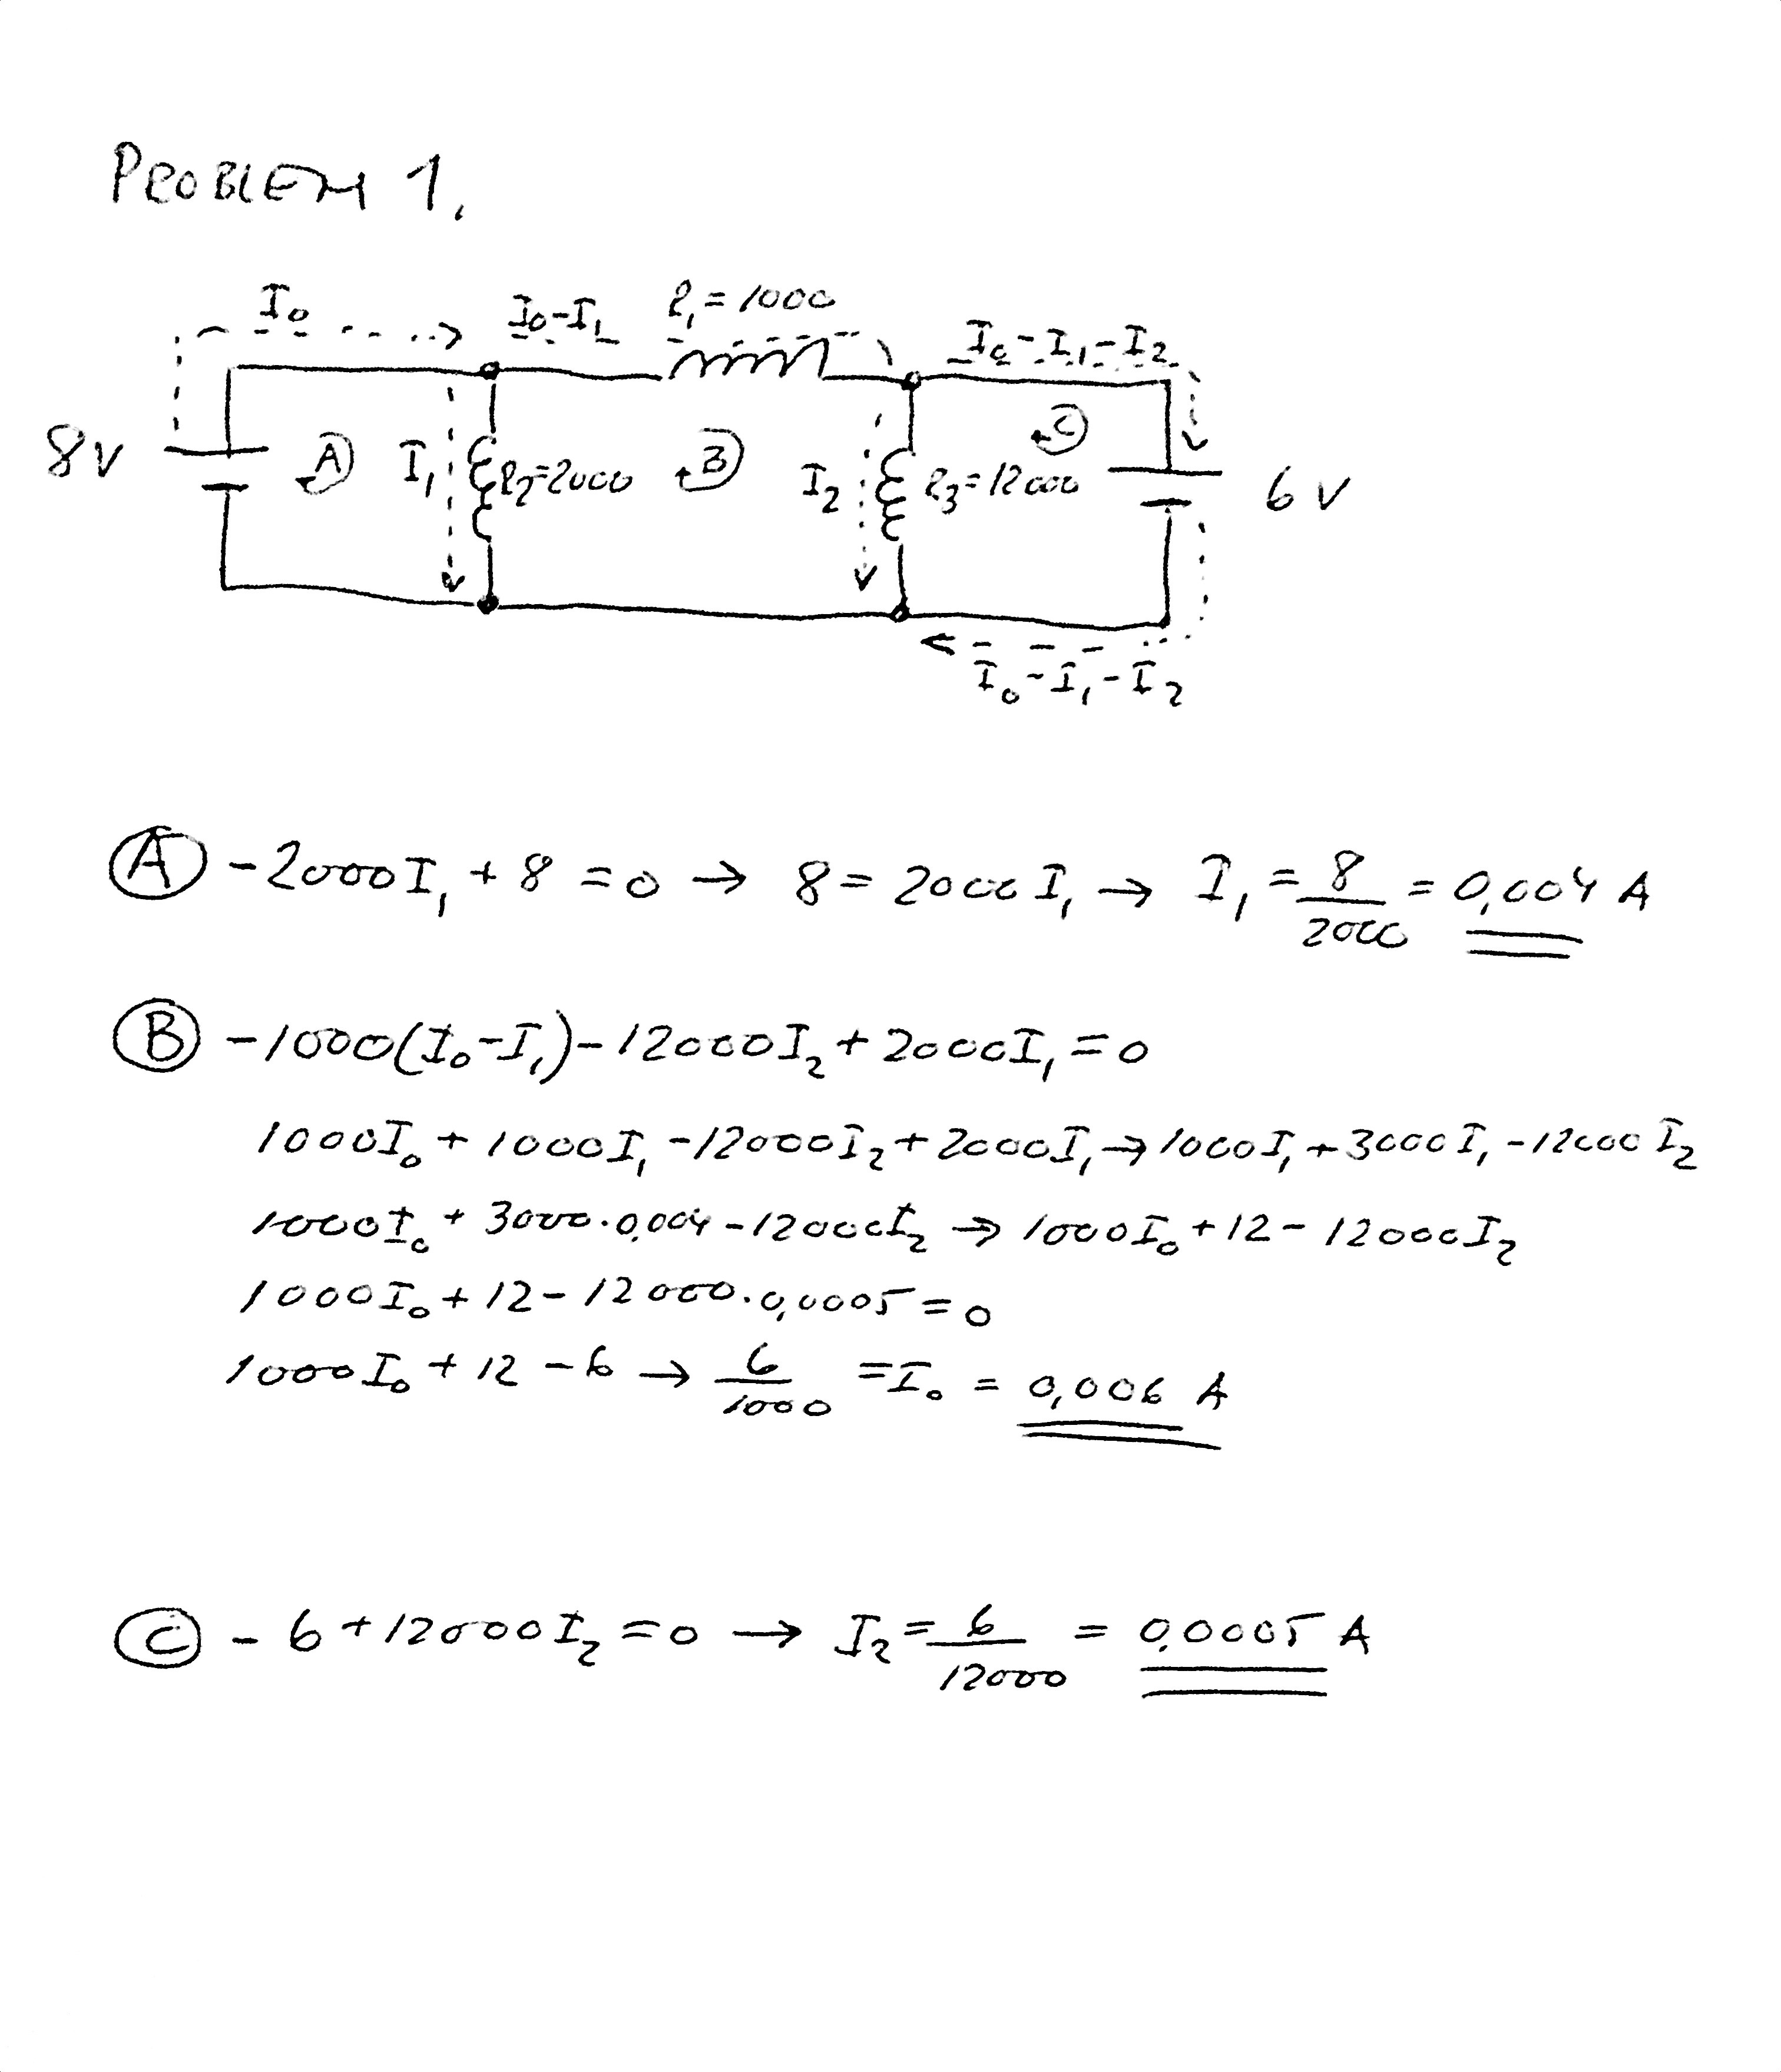 PROBLEM 1.
I₀ I₀-I₁ R₁=1000 I₀-I₁-I₂
8V A I₁ R₂=2000 B I₂ R₃=12000 C 6V
I₀-I₁-I₂
A -2000I₁+8=0 → 8=2000I₁ → I₁=8/2000=0,004 A
B -1000(I₀-I₁)-12000I₂+2000I₁=0
1000I₀+1000I₁-12000I₂+2000I₁→1000I₁+3000I₁-12000I₂
1000I₀+3000·0,004-12000I₂→1000I₀+12-12000I₂
1000I₀+12-12000·0,0005=0
1000I₀+12-6→6/1000=I₀=0,006 A
C -6+12000I₂=0 → I₂=6/12000=0,0005 A